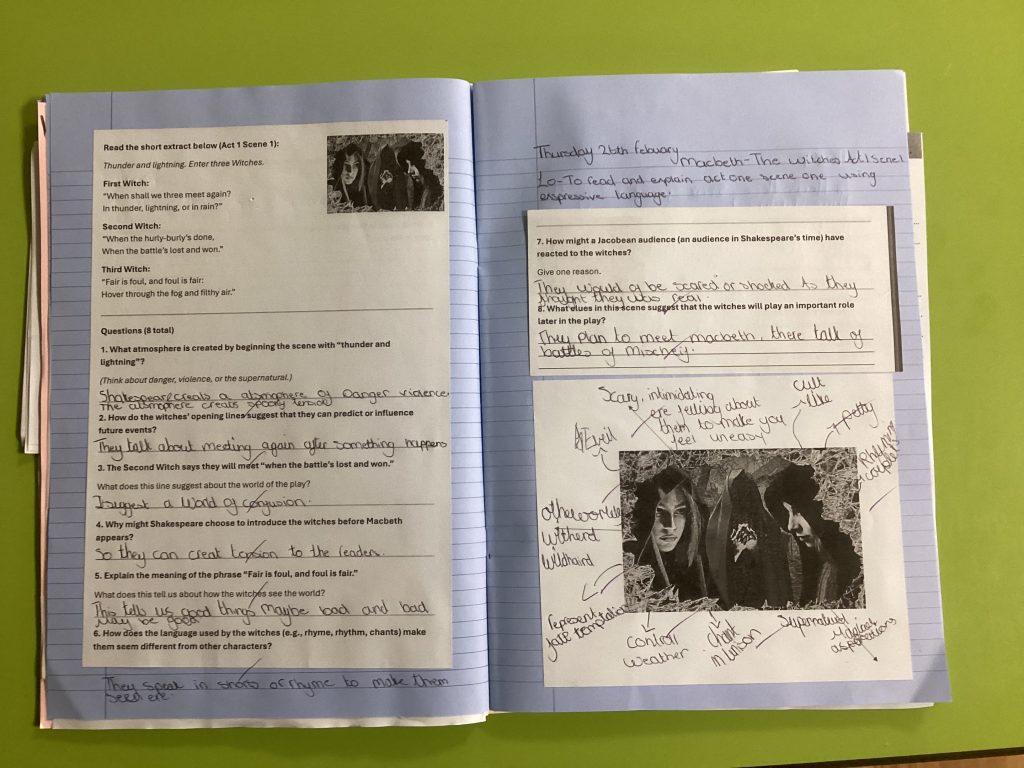 Read the short extract below (Act 1 Scene 1):
Thunder and lightning. Enter three Witches.
First Witch:
“When shall we three meet again?
In thunder, lightning, or in rain?”
Second Witch:
“When the hurly-burly’s done,
When the battle’s lost and won.”
Third Witch:
“Fair is foul, and foul is fair:
Hover through the fog and filthy air.”
Questions (8 total)
1. What atmosphere is created by beginning the scene with “thunder and
lightning”?
(Think about danger, violence, or the supernatural.)
creats a of Danger violence
The creats spooky
2. How do the witches’ opening lines suggest that they can predict or influence
future events?
They talk about meeting again after something happens
3. The Second Witch says they will meet “when the battle’s lost and won.”
What does this line suggest about the world of the play?
suggest a world of confusion.
4. Why might Shakespeare choose to introduce the witches before Macbeth
appears?
So they can creat to the reader.
5. Explain the meaning of the phrase “Fair is foul, and foul is fair.”
What does this tell us about how the witches see the world?
This tell us good things maybe bad and bad
may be good
6. How does the language used by the witches (e.g., rhyme, rhythm, chants) make
them seem different from other characters?
They speak in or rhyme to make them
Thursday 26th
Macbeth-The witches Act 1 Scene 1
Lo-To read and explain act one scene one using
expressive language.
7. How might a Jacobean audience (an audience in Shakespeare’s time) have
reacted to the witches?
Give one reason.
They would be scared or shocked as they
thought they was real.
8. What clues in this scene suggest that the witches will play an important role
later in the play?
They plan to meet macbeth, there talk of
battles of
Scary, intimidating
about
them to make you
feel uneasy
cult
like
Rhyming
couplets
represent
control
weather
chant
in unison